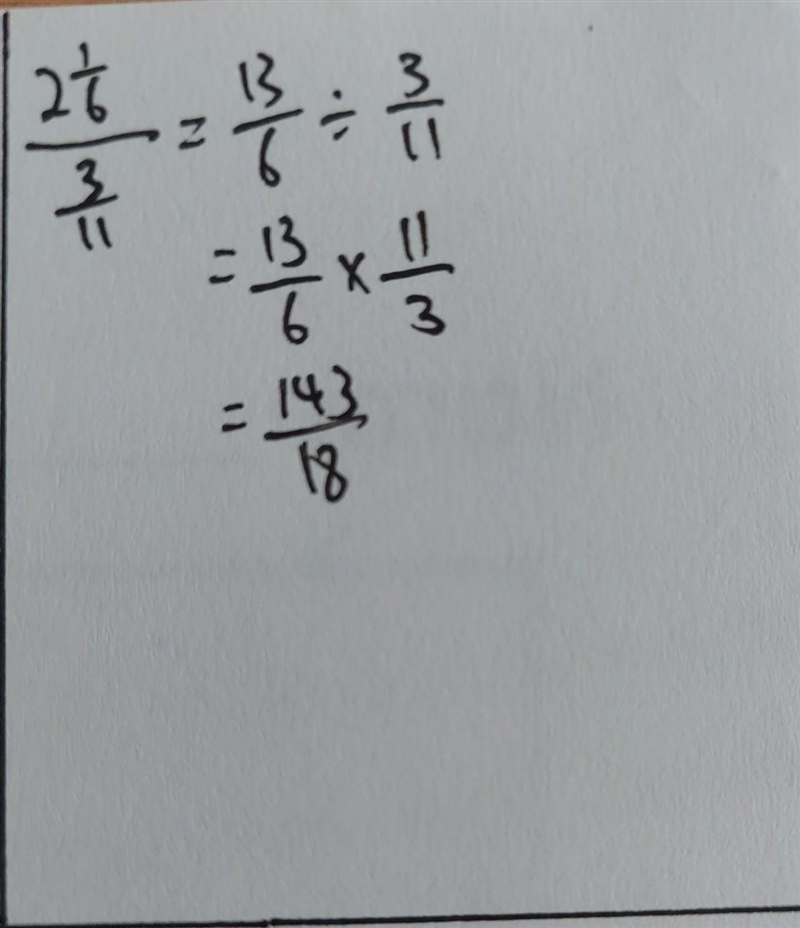 2 1/6 / 3/11 = 13/6 ÷ 3/11
= 13/6 × 11/3
= 143/18